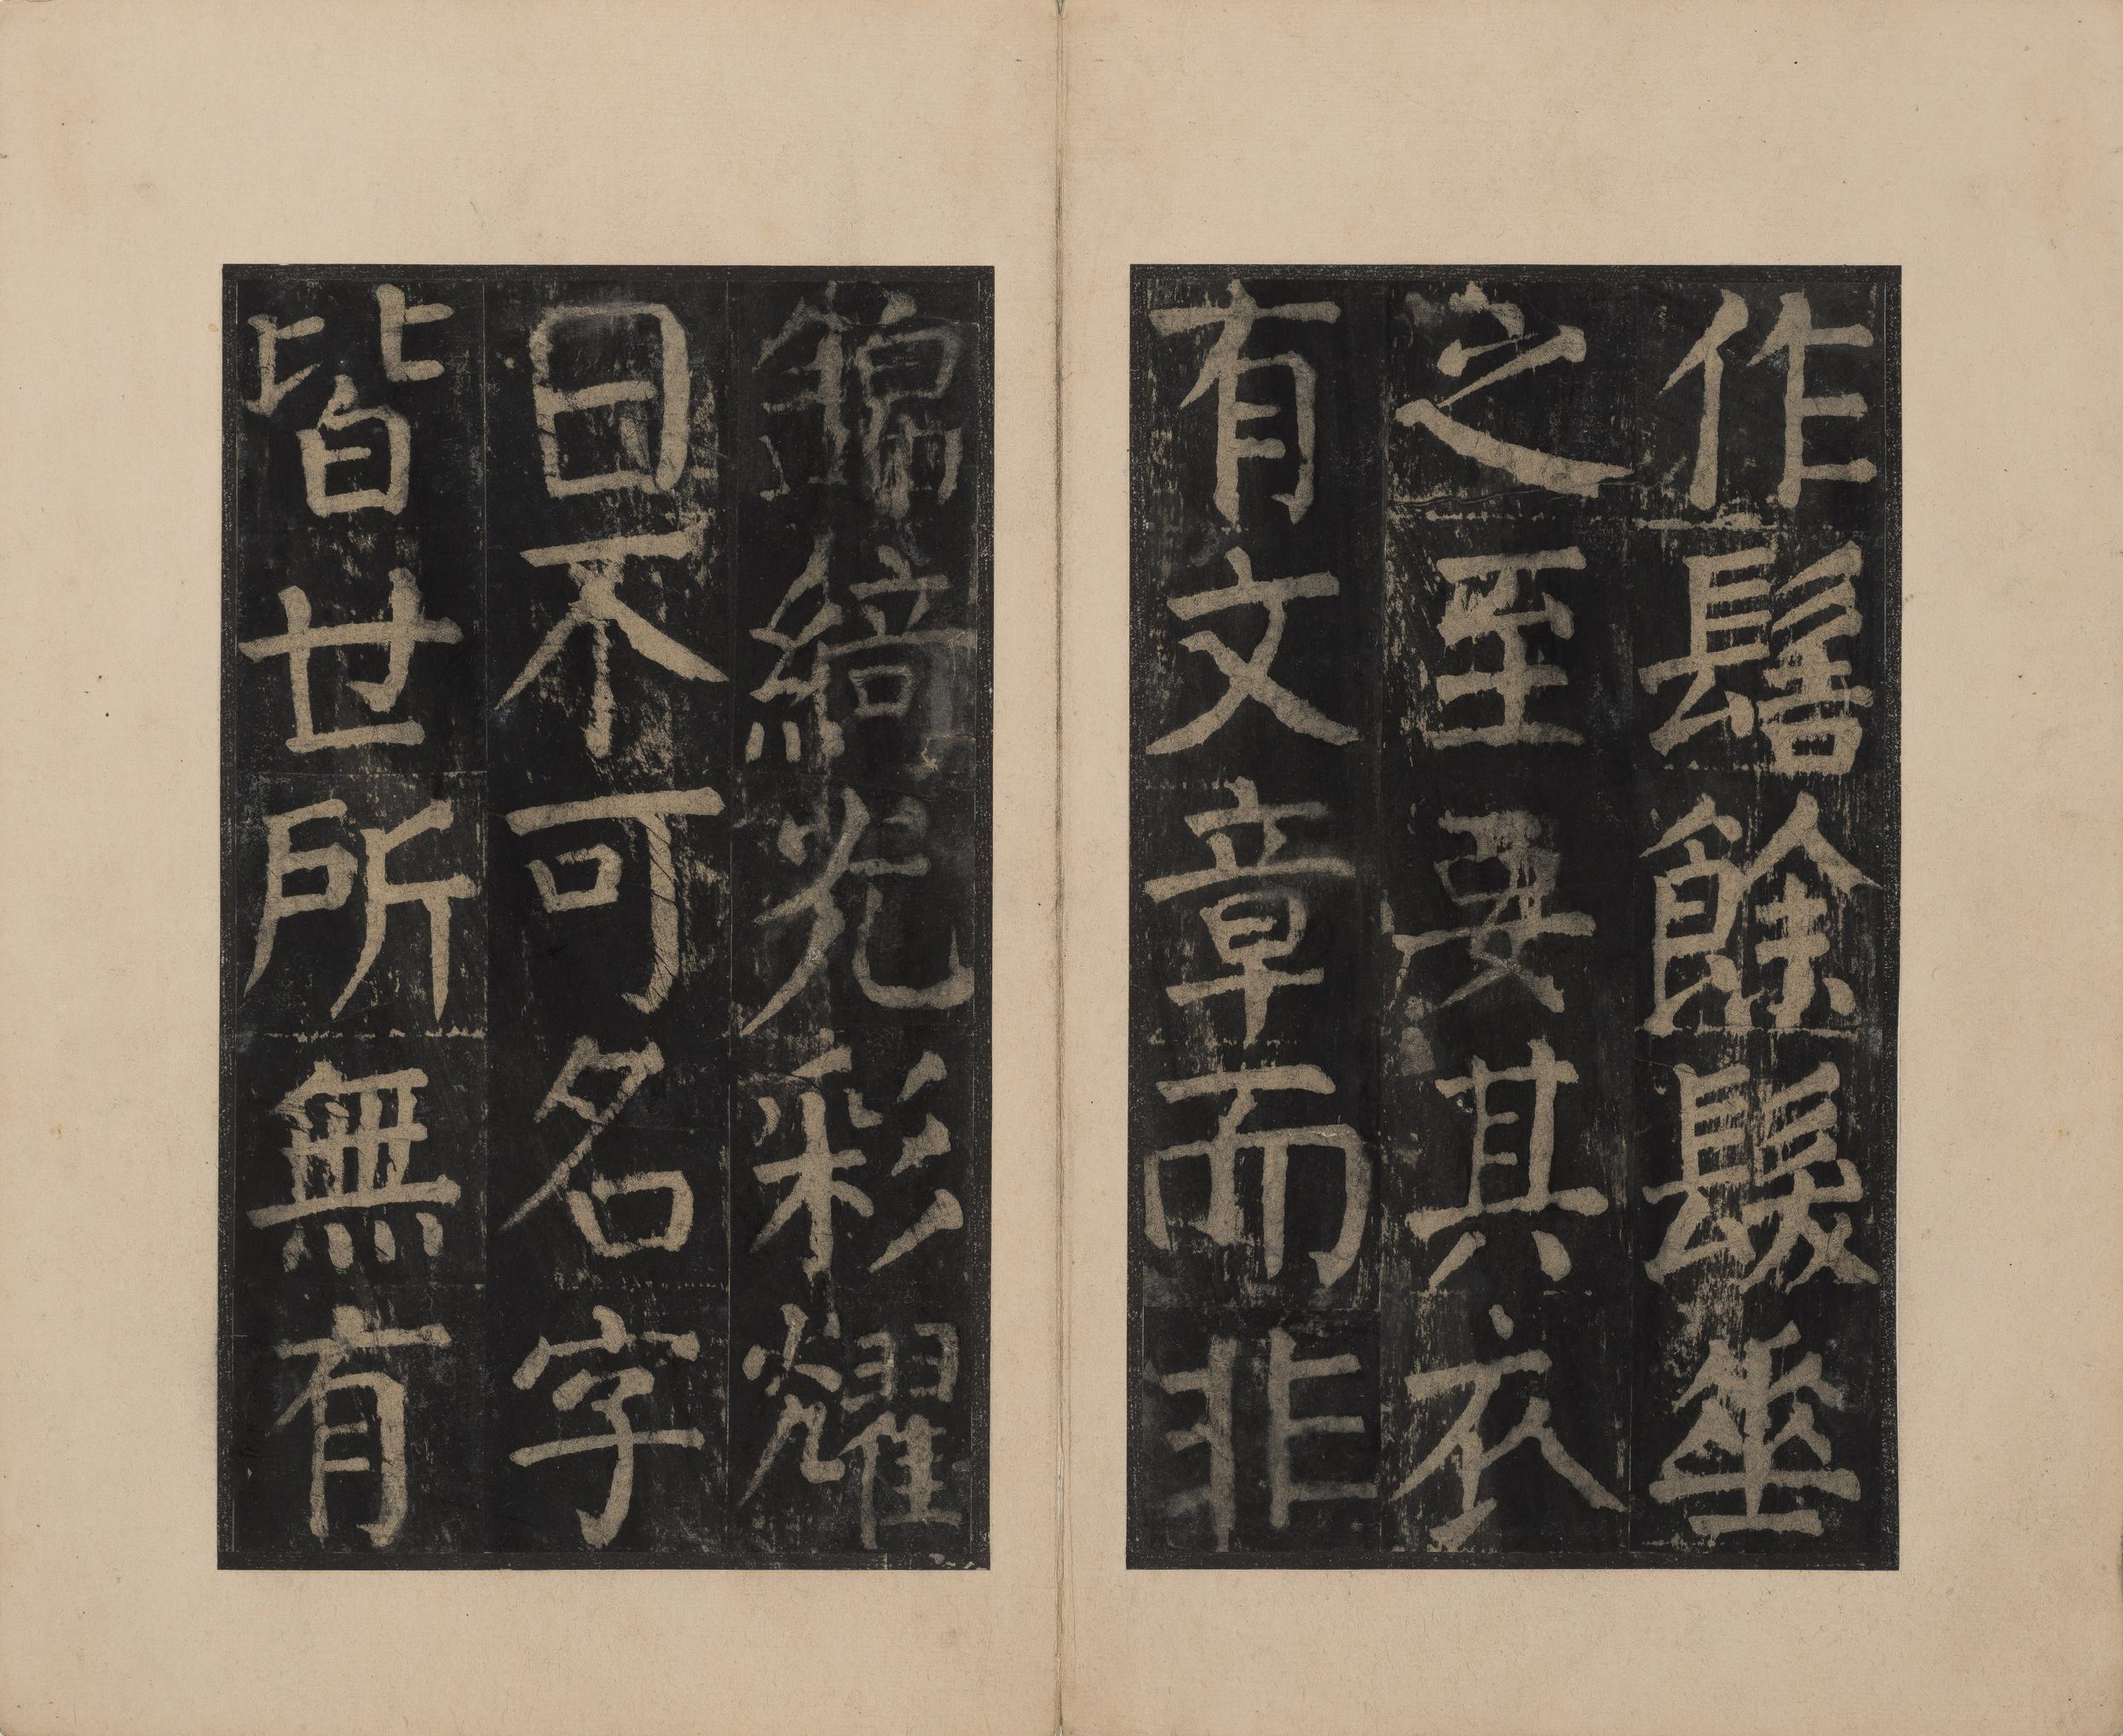 作髻餘髮垂
之至要其衣
有文章而非
錦綺光彩耀
日不可名字
皆世所無有